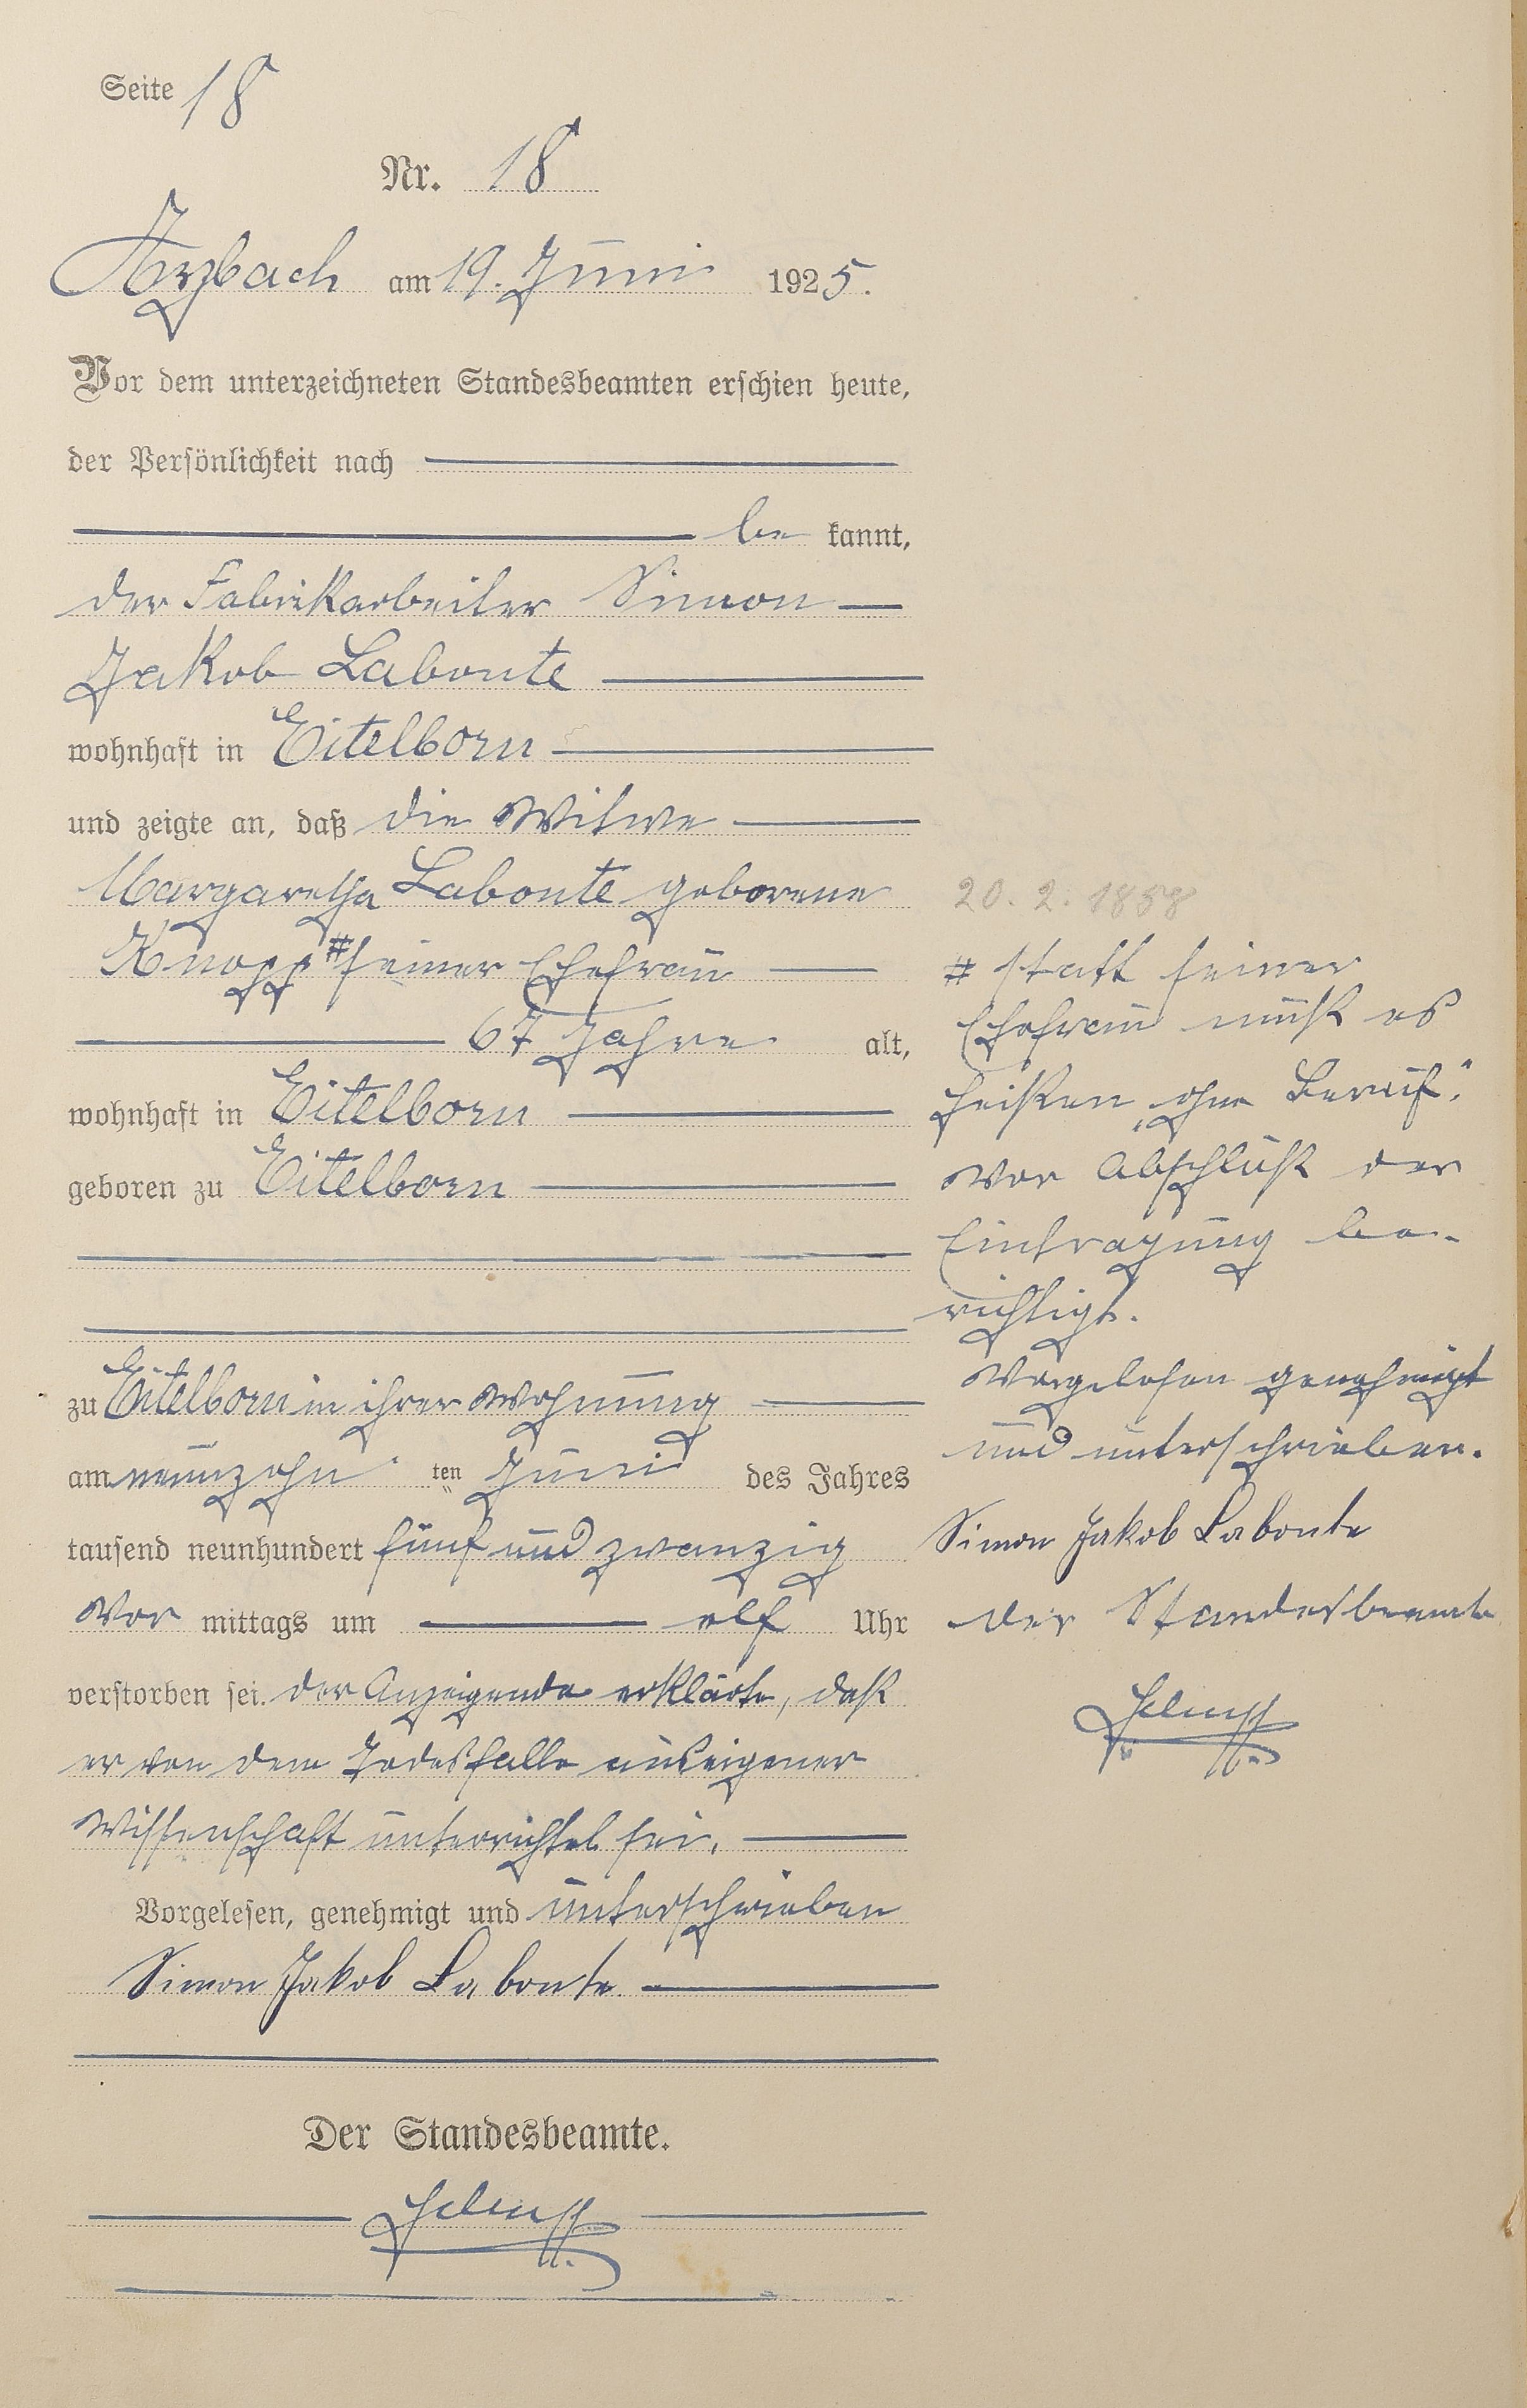 Seite 18
Nr. 18
Arzbach am 19. Juni 1925.
Vor dem unterzeichneten Standesbeamten erschien heute,
der Persönlichkeit nach
be kannt,
der Fabrikarbeiter Simon
Jakob Labonte
wohnhaft in Eitelborn
und zeigte an, daß die Witwe
Margaretha Labonte geborene
Knopp # seiner Ehefrau
67 Jahre alt,
wohnhaft in Eitelborn
geboren zu Eitelborn
zu Eitelborn in ihrer Wohnung
am neunzehn ten Juni des Jahres
tausend neunhundert fünf und zwanzig
Vor mittags um elf Uhr
verstorben sei. Der Anzeigende erklärte, daß
er von dem Todesfalle aus eigener
Wissenschaft unterrichtet sei.
Vorgelesen, genehmigt und unterschrieben
Simon Jakob Labonte
Der Standesbeamte.
20. 2. 1858
# statt seiner
Ehefrau muß es
heißen „ohne Beruf."
Vor Abschluß der
Eintragung be-
richtigt.
Vorgelesen genehmigt
und unterschrieben.
Simon Jakob Labonte
der Standesbeamte